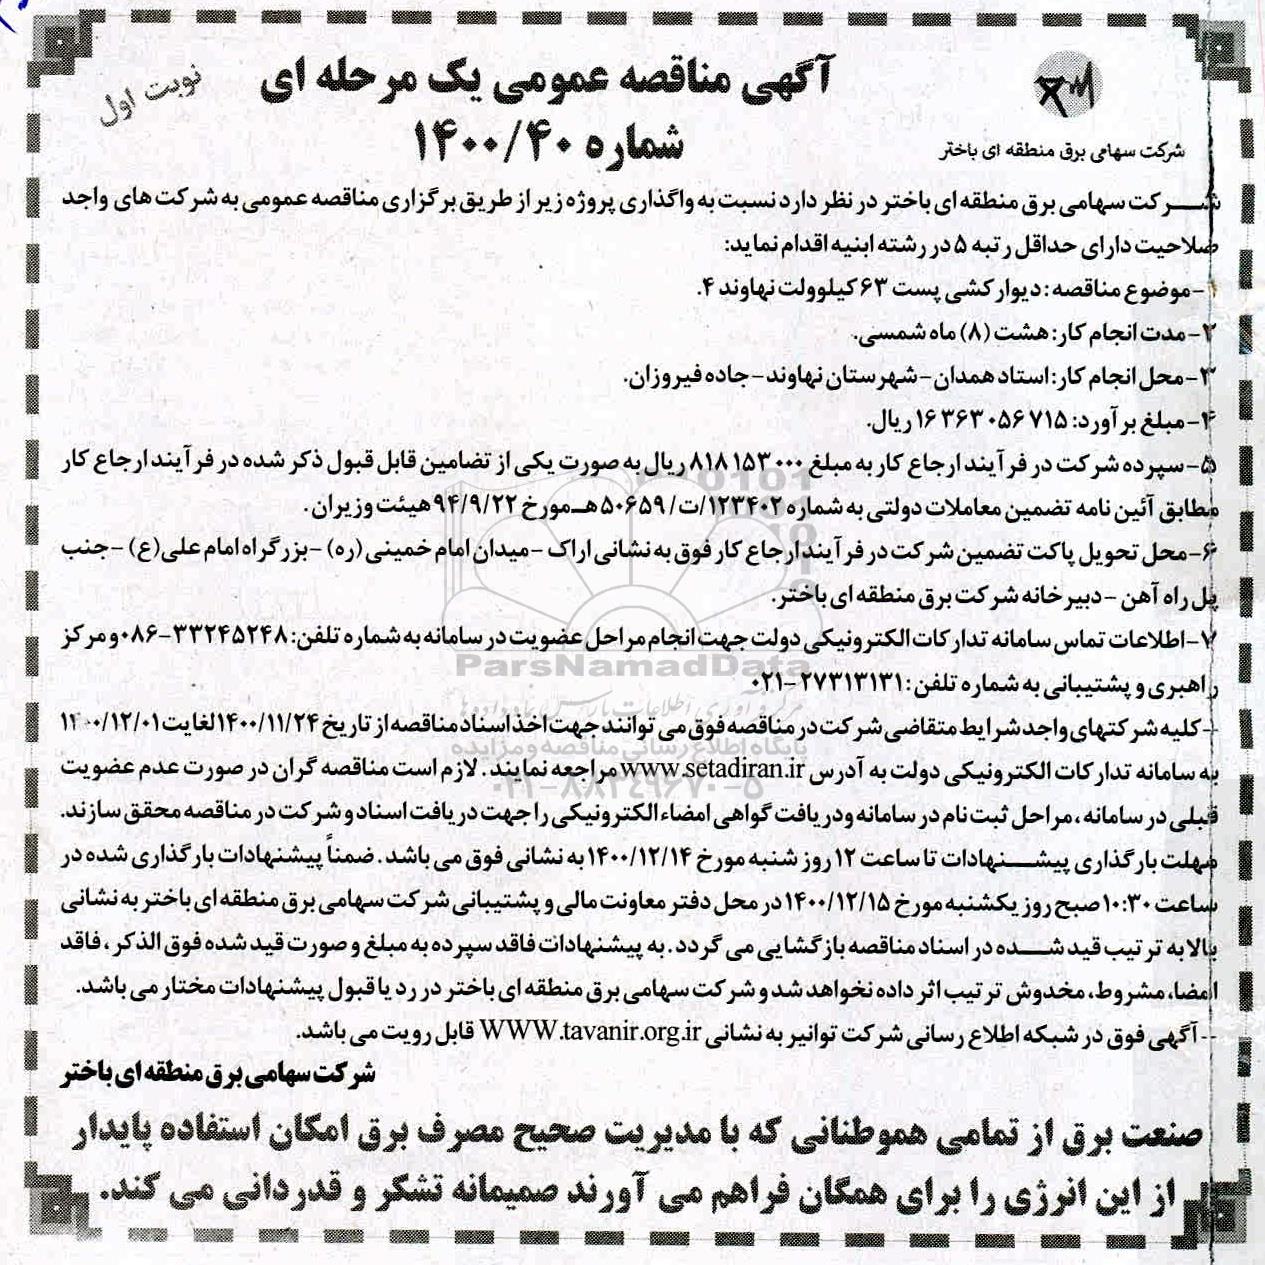 آگهی مناقصه عمومی یک مرحله ای
نوبت اول
شماره ۱۴۰۰/۴۰
شرکت سهامی برق منطقه ای باختر
شرکت سهامی برق منطقه ای باختر در نظر دارد نسبت به واگذاری پروژه زیر از طریق برگزاری مناقصه عمومی به شرکت های واجد
صلاحیت دارای حداقل رتبه ۵ در رشته ابنیه اقدام نماید:
۱-موضوع مناقصه: دیوارکشی پست ۶۳ کیلوولت نهاوند ۴.
۲-مدت انجام کار: هشت (۸) ماه شمسی.
۳-محل انجام کار: استاد همدان-شهرستان نهاوند-جاده فیروزان.
۴-مبلغ برآورد: ۱۶ ۳۶۳ ۰۵۶ ۷۱۵ ریال.
۵-سپرده شرکت در فرآیند ارجاع کار به مبلغ ۸۱۸ ۱۵۳ ۰۰۰ ریال به صورت یکی از تضامین قابل قبول ذکر شده در فرآیند ارجاع کار
مطابق آئین نامه تضمین معاملات دولتی به شماره ۱۲۳۴۰۲/ت/۵۰۶۵۹هـ مورخ ۹۴/۹/۲۲ هیئت وزیران.
۶-محل تحویل پاکت تضمین شرکت در فرآیند ارجاع کار فوق به نشانی اراک -میدان امام خمینی(ره) -بزرگراه امام علی(ع) -جنب
پل راه آهن -دبیرخانه شرکت برق منطقه ای باختر.
۷-اطلاعات تماس سامانه تدارکات الکترونیکی دولت جهت انجام مراحل عضویت در سامانه به شماره تلفن: ۳۳۲۴۵۲۴۸-۰۸۶ و مرکز
راهبری و پشتیبانی به شماره تلفن: ۲۷۳۱۳۱۳۱-۰۲۱
-کلیه شرکتهای واجد شرایط متقاضی شرکت در مناقصه فوق می توانند جهت اخذ اسناد مناقصه از تاریخ ۱۴۰۰/۱۱/۲۴ لغایت ۱۴۰۰/۱۲/۰۱
به سامانه تدارکات الکترونیکی دولت به آدرس www.setadiran.ir مراجعه نمایند. لازم است مناقصه گران در صورت عدم عضویت
قبلی در سامانه، مراحل ثبت نام در سامانه ودریافت گواهی امضاء الکترونیکی را جهت دریافت اسناد و شرکت در مناقصه محقق سازند.
مهلت بارگذاری پیشنهادات تا ساعت ۱۲ روز شنبه مورخ ۱۴۰۰/۱۲/۱۴ به نشانی فوق می باشد. ضمناً پیشنهادات بارگذاری شده در
ساعت ۱۰:۳۰ صبح روز یکشنبه مورخ ۱۴۰۰/۱۲/۱۵ در محل دفتر معاونت مالی و پشتیبانی شرکت سهامی برق منطقه ای باختر به نشانی
بالا به ترتیب قید شده در اسناد مناقصه بازگشایی می گردد. به پیشنهادات فاقد سپرده به مبلغ و صورت قید شده فوق الذکر، فاقد
امضا، مشروط، مخدوش ترتیب اثر داده نخواهد شد و شرکت سهامی برق منطقه ای باختر در رد یا قبول پیشنهادات مختار می باشد.
--آگهی فوق در شبکه اطلاع رسانی شرکت توانیر به نشانی WWW.tavanir.org.ir قابل رویت می باشد.
شرکت سهامی برق منطقه ای باختر
صنعت برق از تمامی هموطنانی که با مدیریت صحیح مصرف برق امکان استفاده پایدار
از این انرژی را برای همگان فراهم می آورند صمیمانه تشکر و قدردانی می کند.
ParsNamadData
پایگاه اطلاع رسانی مناقصه و مزایده
۰۲۱-۸۸۳۴۹۶۷۰-۵